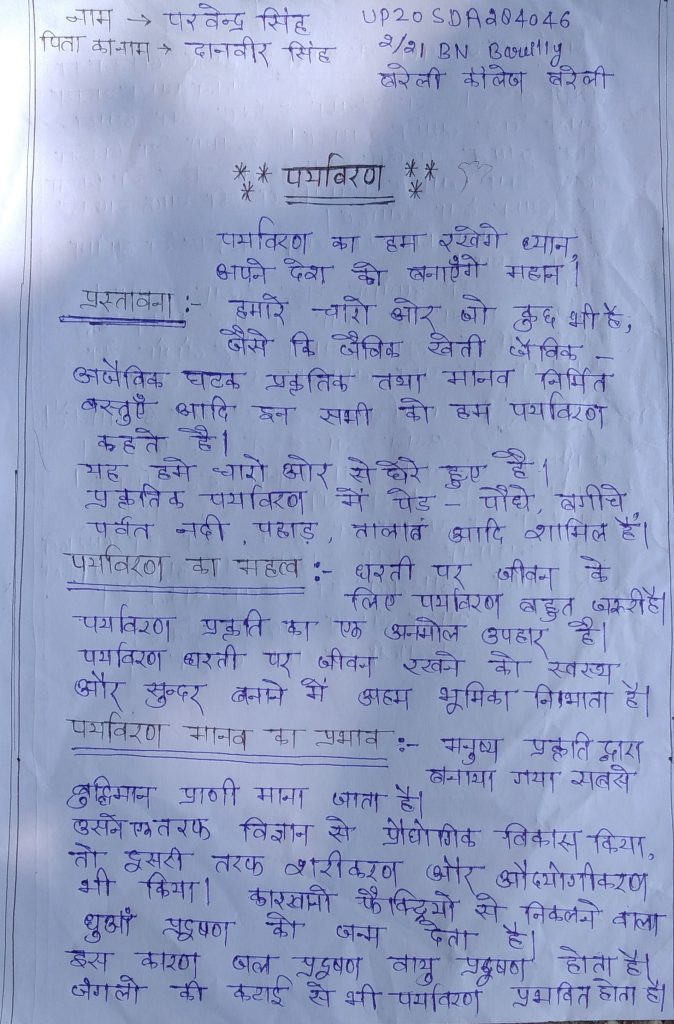 नाम → परवेन्द्र सिंह UP20SDA204046
पिता का नाम → दानवीर सिंह 2/21 BN Barully
बरेली कॉलेज बरेली
पर्यावरण
पर्यावरण का हम रखेगे ध्यान,
अपने देश को बनाएँगे महान।
प्रस्तावना :- हमारे चारो ओर जो कुछ भी है,
जैसे कि जैविक खेती जैविक -
अजैविक घटक प्रकृतिक तथा मानव निर्मित
वस्तुएँ आदि इन सभी को हम पर्यावरण
कहते है।
यह हमे चारो ओर से घेरे हुए है।
प्रकृतिक पर्यावरण में पेड - पौधे, बगीचे,
पर्वत नदी, पहाड़, तालाब आदि शामिल है।
पर्यावरण का महत्व :- धरती पर जीवन के
लिए पर्यावरण बहुत जरूरी है।
पर्यावरण प्रकृति का एक अनमोल उपहार है।
पर्यावरण धरती पर जीवन रखने को स्वस्थ
और सुन्दर बनाने में अहम भूमिका निभाता है।
पर्यावरण मानव का प्रभाव :- मनुष्य प्रकृति द्वारा
बनाया गया सबसे
बुद्धिमान प्राणी माना जाता है।
उसने एक तरफ विज्ञान से प्रौद्योगिक विकास किया,
तो दूसरी तरफ शहरीकरण और औद्योगीकरण
भी किया। कारखानो फैक्ट्रियो से निकलने वाला
धुआँ प्रदूषण को जन्म देता है।
इस कारण जल प्रदूषण वायु प्रदूषण होता है।
जंगलो की कटाई से भी पर्यावरण प्रभावित होता है।